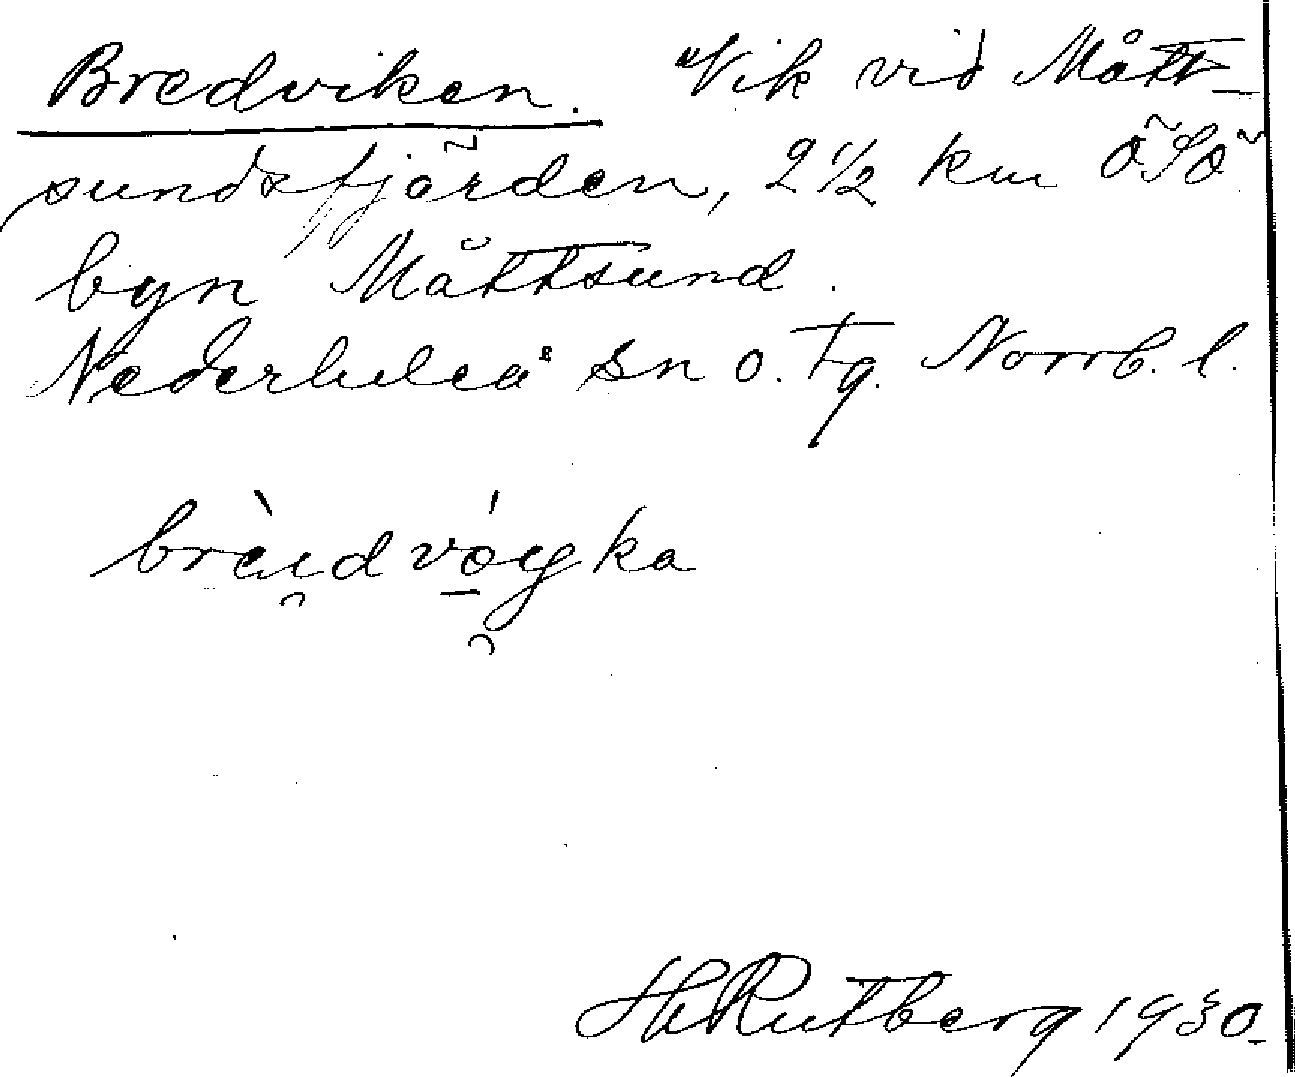 Bredviken. Vik vid Mått-
sundsfjärden, 2 1/2 km ÖSÖ
byn Måttsund.
Nederluleå sn o. tg. Norrb. l.
HRutberg 1930.